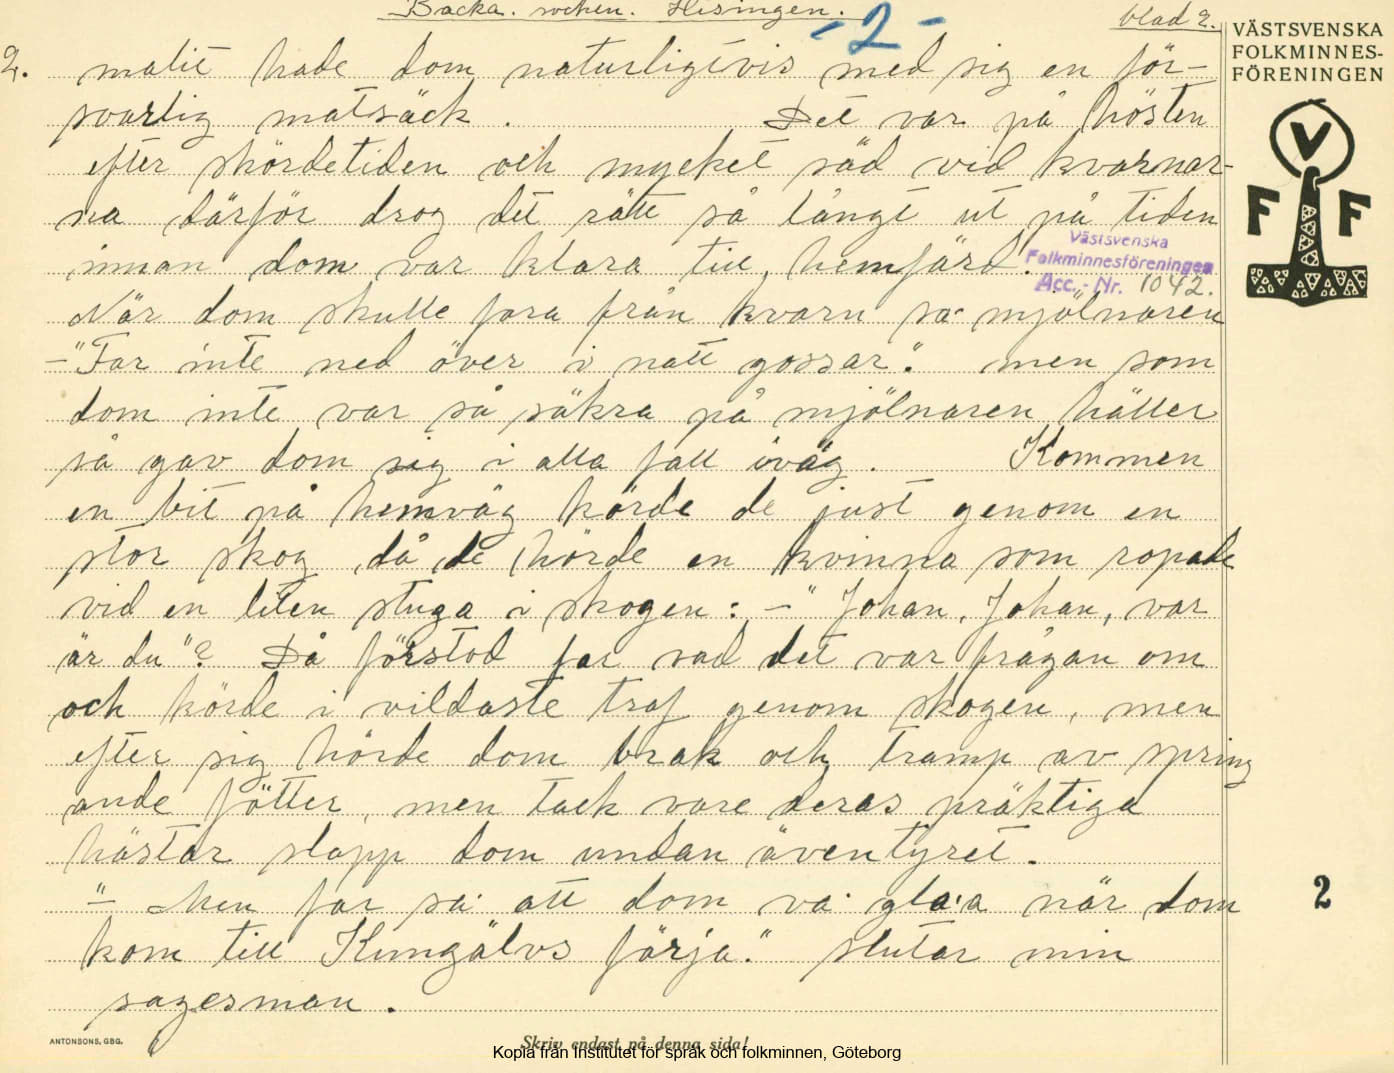 Backa. socken. Hisingen.
- 2 -
blad 2.
VÄSTSVENSKA
FOLKMINNES-
FÖRENINGEN
V
F F
2. malit hade dom naturligtvis med sig en för-
svarlig matsäck. Det var på hösten
efter skördetiden och mycket säd vid kvarnar-
na därför drog det rätt så långt ut på tiden
innan dom var klara till hemfärd.
Västsvenska
Folkminnesföreningen
Acc. - Nr. 1042.
När dom skulle fara från kvarn sa· mjölnaren
-"Far inte ned över i natt gossar." men som
dom inte var så säkra på mjölnaren häller
så gav dom sig i alla fall iväg. Kommen
en bit på hemväg körde de just genom en
stor skog, då de hörde en kvinna som ropade
vid en liten stuga i skogen: -"Johan, Johan, var
är du"? Då förstod far vad det var frågan om
och körde i vildaste traf genom skogen, men
efter sig hörde dom brak och tramp av spring
ande fötter, men tack vare deras präktiga
hästar slapp dom undan äventyret.
"- Men far sa· att dom va· gla·a när dom
kom till Kungälvs färja." slutar min
sagesman.
2
ANTONSONS, GBG.
Skriv endast på denna sida!
Kopia från Institutet för språk och folkminnen, Göteborg